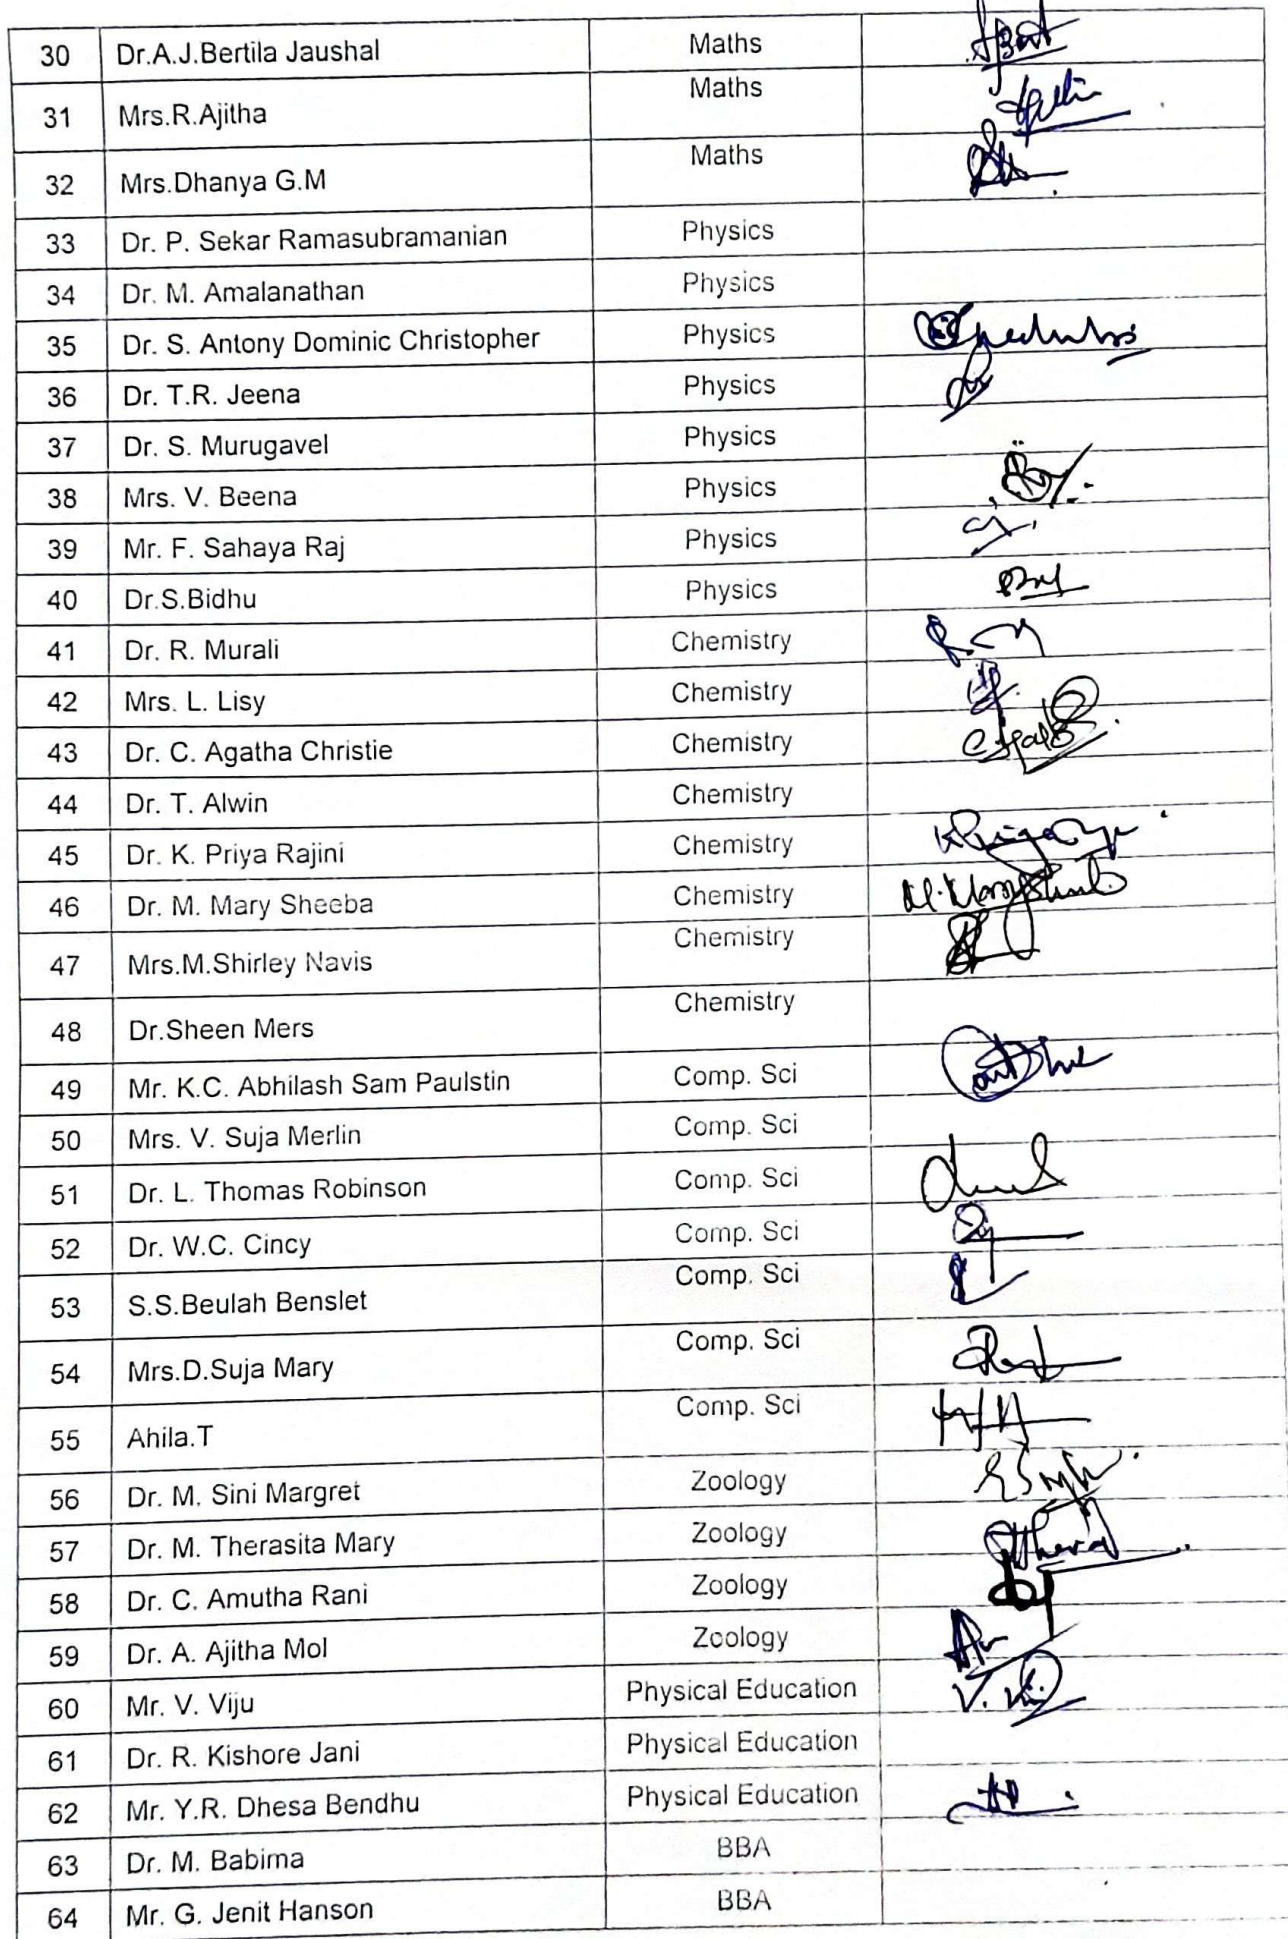 30 Dr.A.J.Bertila Jaushal Maths
31 Mrs.R.Ajitha Maths
32 Mrs.Dhanya G.M Maths
33 Dr. P. Sekar Ramasubramanian Physics
34 Dr. M. Amalanathan Physics
35 Dr. S. Antony Dominic Christopher Physics
36 Dr. T.R. Jeena Physics
37 Dr. S. Murugavel Physics
38 Mrs. V. Beena Physics
39 Mr. F. Sahaya Raj Physics
40 Dr.S.Bidhu Physics
41 Dr. R. Murali Chemistry
42 Mrs. L. Lisy Chemistry
43 Dr. C. Agatha Christie Chemistry
44 Dr. T. Alwin Chemistry
45 Dr. K. Priya Rajini Chemistry
46 Dr. M. Mary Sheeba Chemistry M. Mary Sheeba
47 Mrs.M.Shirley Navis Chemistry
48 Dr.Sheen Mers Chemistry
49 Mr. K.C. Abhilash Sam Paulstin Comp. Sci
50 Mrs. V. Suja Merlin Comp. Sci
51 Dr. L. Thomas Robinson Comp. Sci
52 Dr. W.C. Cincy Comp. Sci
53 S.S.Beulah Benslet Comp. Sci
54 Mrs.D.Suja Mary Comp. Sci
55 Ahila.T Comp. Sci
56 Dr. M. Sini Margret Zoology
57 Dr. M. Therasita Mary Zoology
58 Dr. C. Amutha Rani Zoology
59 Dr. A. Ajitha Mol Zoology
60 Mr. V. Viju Physical Education
61 Dr. R. Kishore Jani Physical Education
62 Mr. Y.R. Dhesa Bendhu Physical Education
63 Dr. M. Babima BBA
64 Mr. G. Jenit Hanson BBA